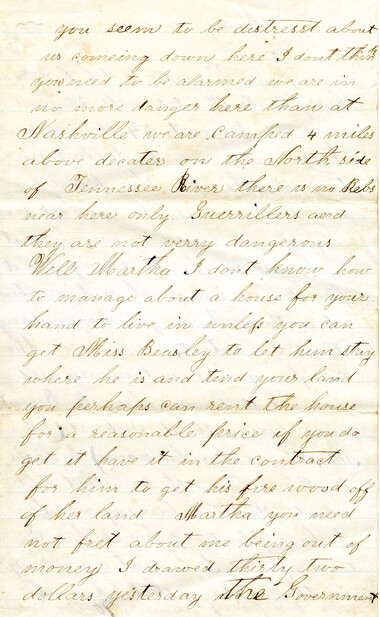 you seem to be distresst about
us comeing down here I dont think
you need to be alarmed we are in
no more danger here than at
Nashville we are camped 4 miles
above decater on the North side
of Tennessee River there is no Rebs
near here only Guerrillers and
they are not verry dangerous
Well Martha I dont know how
to manage about a house for your
hand to live in unless you can
get Miss Beasley to let him stay
where he is and tend your land
you perhaps can rent the house
for a reasonable price if you do
get it have it in the contract
for him to get his fire wood off
of her land Martha you need
not fret about me being out of
money I drawed thirty two
dollars yesterday the Government